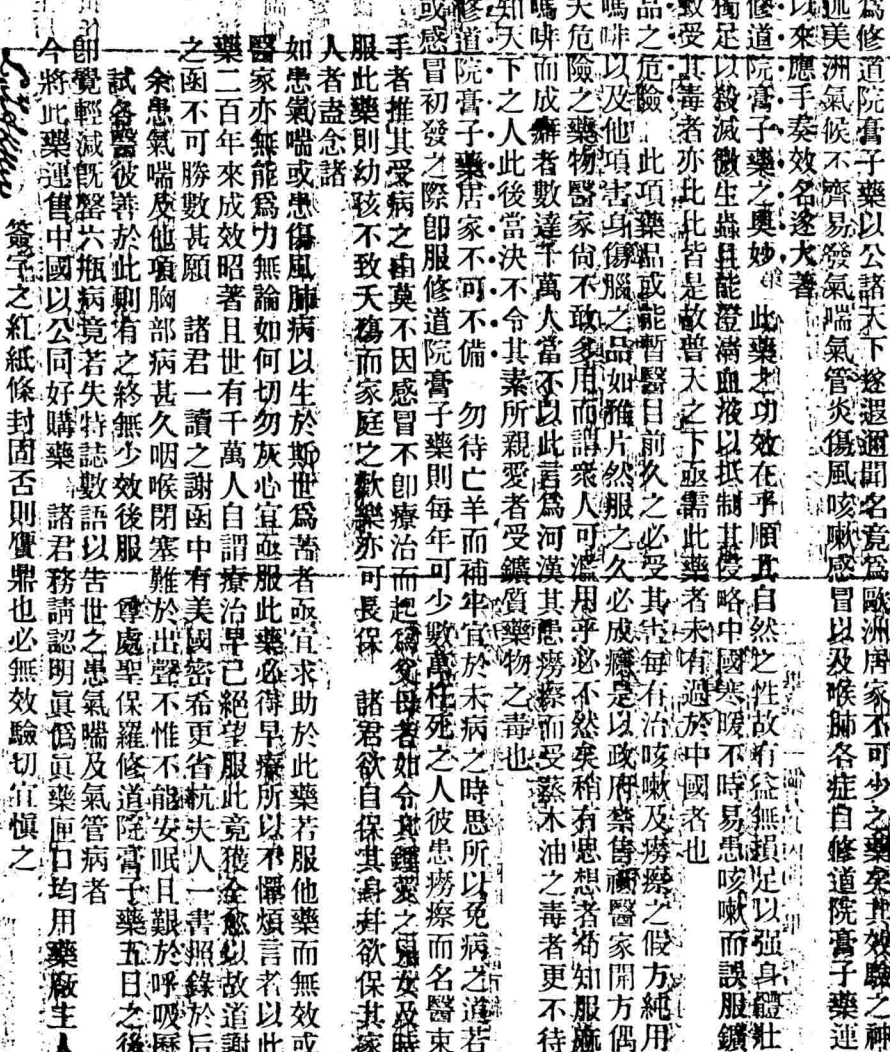 爲修道院膏子藥以公諸天下遂遐邇聞名竟爲歐洲居家不可少之藥矣其效驗之神
美洲氣候不齊易發氣喘氣管炎傷風咳嗽感冒以及喉肺各症自修道院膏子藥運
以來應手奏效名遂大著
修道院膏子藥之奧妙 此藥之功效在乎順其自然之性故有益無損足以强身體壯
獨足以殺滅微生蟲且能澄淸血液以抵制其侵略中國寒暖不時易患咳嗽而誤服鑛
致受其毒者亦比比皆是故普天之下亟需此藥者未有過於中國者也
品之危險 此項藥品或能暫醫目前久之必受其害每有治咳嗽及癆瘵之假方純用
嗎啡以及他項害身傷腦之品如雅片然服之久必成癮是以政府禁售禰醫家開方偶
大危險之藥物醫家尙不敢多用而謂衆人可濫用乎必不然矣稍有思想者苟知服
嗎啡而成癖者數達千萬人當不以此言爲河漢其患癆瘵而受蒸木油之毒者更不待
知天下之人此後當決不令其素所親愛者受鑛質藥物之毒也
修道院膏子藥居家不可不備 勿待亡羊而補牢宜於未病之時思所以免病之道若
或感冒初發之際卽服修道院膏子藥則每年可少數萬枉死之人彼患癆瘵而名醫束
手者推其受病之由莫不因感冒不卽療治而起爲父母者如令其鍾愛之兒女及時
服此藥則幼孩不致夭殤而家庭之歡樂亦可長保 諸君欲自保其身幷欲保其家
人者盍念諸
如患氣喘或患傷風肺病以生於斯世爲苦者亟宜求助於此藥若服他藥而無效或
醫家亦無能爲力無論如何切勿灰心宜亟服此藥必得早療所以不憚煩言者以此
藥二百年來成效昭著且世有千萬人自謂療治早已絕望服此竟獲全愈以故道謝
之函不可勝數甚願 諸君一讀之謝函中有美國密希更省杭夫人一書照錄於后
余患氣喘及他項胸部病甚久咽喉閉塞難於出聲不惟不能安眠且艱於呼吸歷
試各醫彼善於此則有之終無少效後服 尊處聖保羅修道院膏子藥五日之後
卽覺輕減旣罄六瓶病竟若失特誌數語以吿世之患氣喘及氣管病者
今將此藥運售中國以公同好購藥 諸君務請認明眞僞眞藥匣口均用藥廠主人
簽字之紅紙條封固否則贗鼎也必無效驗切宜愼之